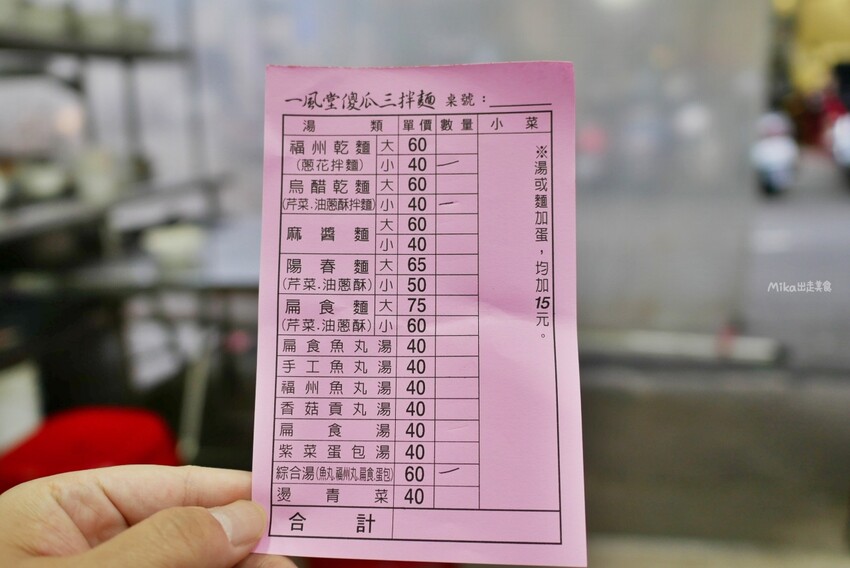 一風堂傻瓜三拌麵 桌號：
湯類 單價 數量 小菜
福州乾麵 大 60
(蔥花拌麵) 小 40 一
烏醋乾麵 大 60
(芹菜.油蔥酥拌麵) 小 40 一
麻醬麵 大 60
小 40
陽春麵 大 65
(芹菜.油蔥酥) 小 50
扁食麵 大 75
(芹菜.油蔥酥) 小 60
扁食魚丸湯 40
手工魚丸湯 40
福州魚丸湯 40
香菇貢丸湯 40
扁食湯 40
紫菜蛋包湯 40
綜合湯(魚丸,福州丸,扁食,蛋包) 60 一
燙青菜 40
合計
※湯或麵加蛋，均加15元。
Mika出走美食